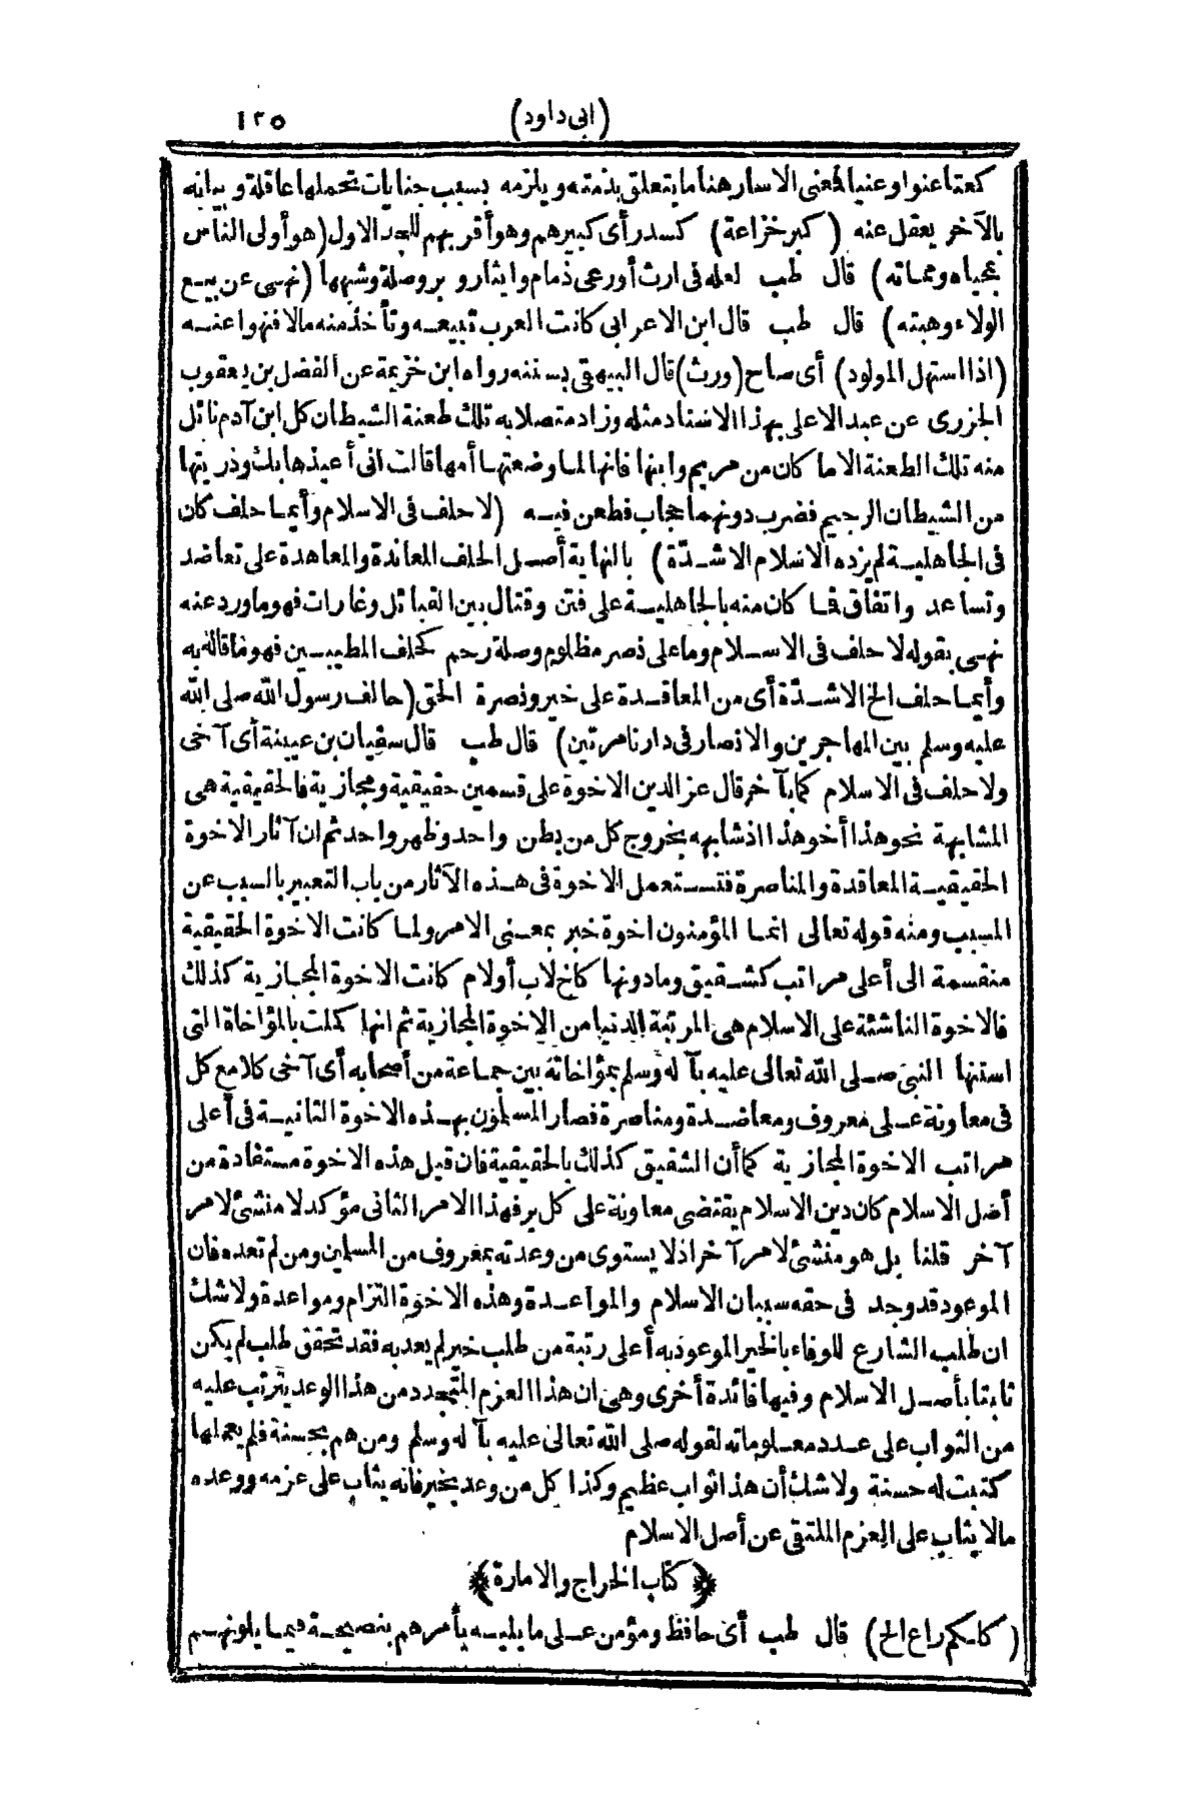 (ابى داود) ١٢٥
كعتا عنوا وعنيا فعنى الاسار هنا ما يتعلق بذمته ويلزمه بسبب جنايات تحملها عاقلة وبيانه
بالآخر يعقل عنه (كبر خزاعة) كسدر أى كبيرهم وهو أقربهم للجد الاول (هو أولى الناس
بمحياه ومماته) قال طب لعله فى ارث أو رعى ذمام وايثار وبر وصلة وشبهها (نهى عن بيع
الولاء وهبته) قال طب قال ابن الاعرابى كانت العرب تبيعه وتأخذ منه مالا فنهوا عنه
(اذا استهل المولود) أى صاح (ورث) قال البيهقى بسننه رواه ابن خزيمة عن الفضل بن يعقوب
الجزرى عن عبد الاعلى بهذا الاسناد مثله وزاد متصلا به تلك طعنة الشيطان كل ابن آدم نائل
منه تلك الطعنة الا ما كان من مريم وابنها فانها لما وضعتها أمها قالت انى أعيذها بك وذريتها
من الشيطان الرجيم فضرب دونهما حجاب فطعن فيه (لا حلف فى الاسلام وأيما حلف كان
فى الجاهلية لم يزده الاسلام الا شدّة) بالنهاية أصل الحلف المعاقدة والمعاهدة على تعاضد
وتساعد واتفاق فما كان منه بالجاهلية على فتن وقتال بين القبائل وغارات فهو ما ورد عنه
نهى بقوله لا حلف فى الاسلام وما على نصر مظلوم وصلة رحم كحلف المطيبين فهو ما قال به
وأيما حلف الخ الا شدّة أى من المعاقدة على خير ونصرة الحق (حالف رسول الله صلى الله
عليه وسلم بين المهاجرين والانصار فى دارنا مرتين) قال طب قال سفيان بن عيينة أى آخى
ولا حلف فى الاسلام كما بآخر قال عز الدين الاخوة على قسمين حقيقية ومجازية فالحقيقية هى
المشابهة نحو هذا أخو هذا اذ شابهه بخروج كل من بطن واحد وظهر واحد ثم ان آثار الاخوة
الحقيقية المعاقدة والمناصرة فتستعمل الاخوة فى هذه الآثار من باب التعبير بالسبب عن
المسبب ومنه قوله تعالى انما المؤمنون اخوة خبر بمعنى الامر ولما كانت الاخوة الحقيقية
منقسمة الى أعلى مراتب كشقيق وما دونها كاخ لاب أو لام كانت الاخوة المجازية كذلك
فالاخوة الناشئة على الاسلام هى المرتبة الدنيا من الاخوة المجازية ثم انها كملت بالمؤاخاة التى
استنها النبى صلى الله تعالى عليه بآله وسلم بمؤاخاته بين جماعة من أصحابه أى آخى كلا مع كل
فى معاونة على معروف ومعاضدة ومناصرة فصار المسلمون بهذه الاخوة الثانية فى أعلى
مراتب الاخوة المجازية كما أن الشقيق كذلك بالحقيقية فان قيل هذه الاخوة مستفادة من
أصل الاسلام كان دين الاسلام يقتضى معاونة على كل بر فهذا الامر الثانى مؤكد لا منشئ لامر
آخر قلنا بل هو منشئ لامر آخر اذ لا يستوى من وعدته بمعروف من المسلمين ومن لم تعده فان
الموعود قد وجد فى حقه سببان الاسلام والمواعدة وهذه الاخوة التزام ومواعدة ولا شك
ان طلب الشارع للوفاء بالخير الموعود به أعلى رتبة من طلب خير لم يعد به فقد تحقق طلب لم يكن
ثابتا بأصل الاسلام وفيها فائدة أخرى وهى ان هذا العزم المتجدد من هذا الوعد يترتب عليه
من الثواب على عدد معلوماته لقوله صلى الله تعالى عليه بآله وسلم ومن هم بحسنة فلم يعملها
كتبت له حسنة ولا شك أن هذا ثواب عظيم وكذا كل من وعد بخير فانه يثاب على عزمه ووعده
مالا يثاب على العزم الملتقى عن أصل الاسلام
﴿كتاب الخراج والامارة﴾
(كلكم راع الخ) قال طب أى حافظ ومؤمن على ما يليه يأمرهم بنصيحة فيما يلونهم